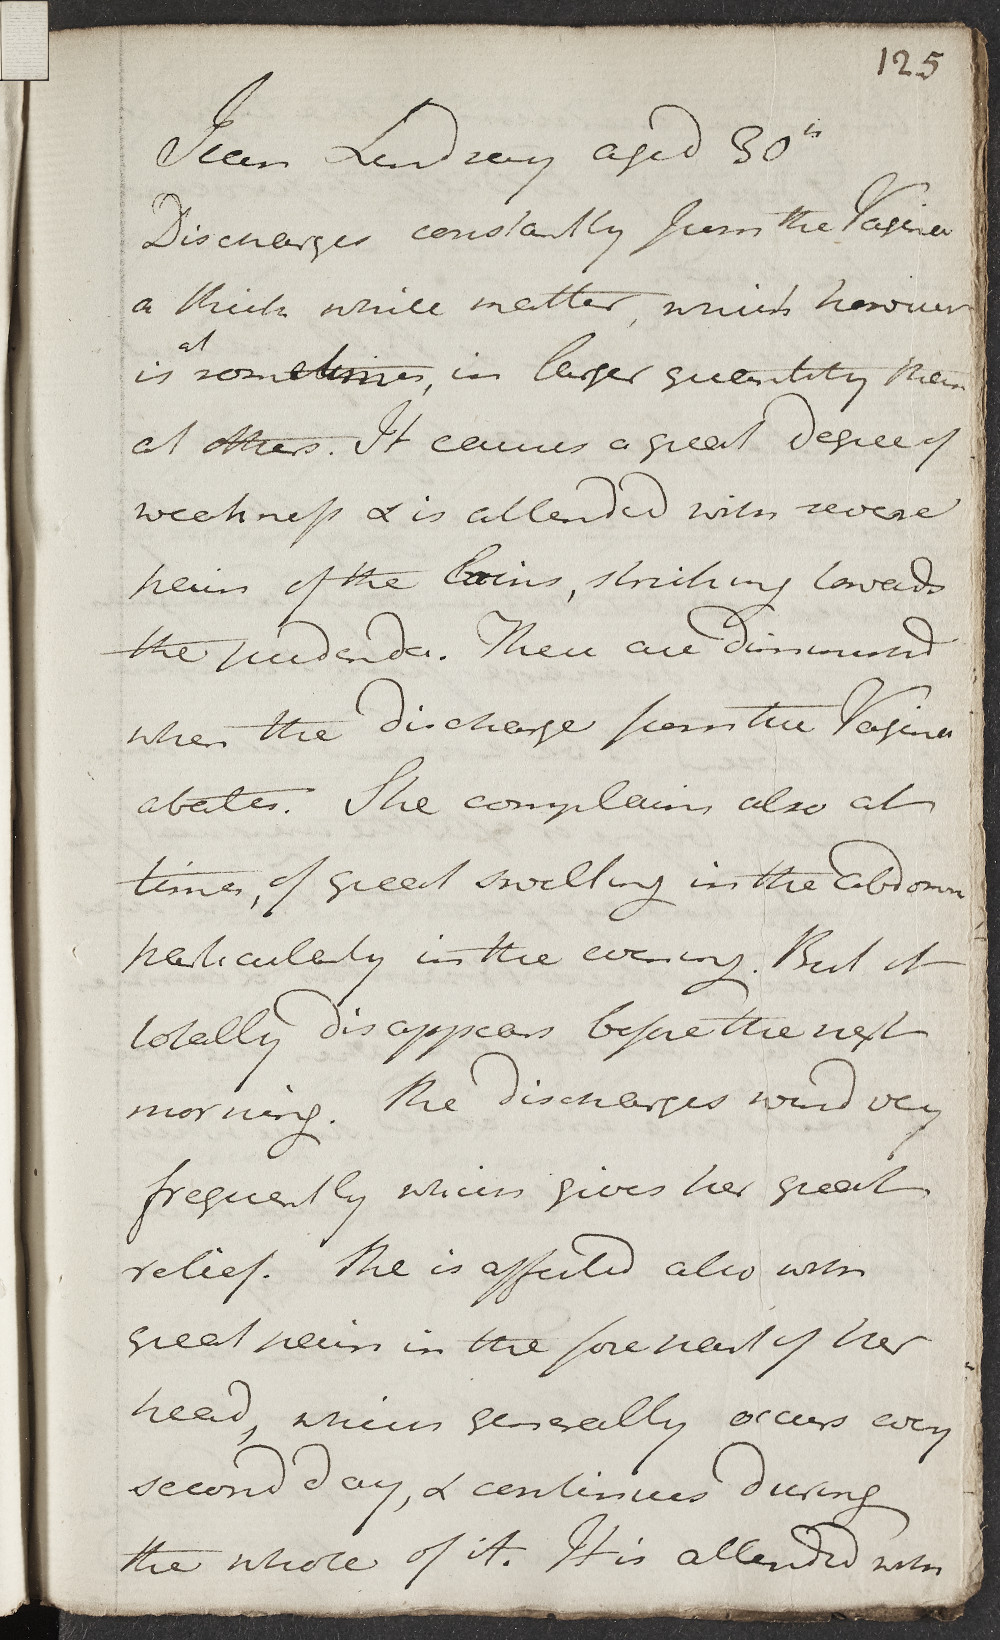 125
Jean Lindsay aged 30
Discharges constantly from the Vagina
a thick white matter, which however
is at sometimes, in larger quantity than
at others. It causes a great degree of
weakness & is attended with severe
pain of the loins, striking towards
the pudenda. These are diminished
when the discharge from the Vagina
abates. She complains also at
times, of great swelling in the Abdomen
particularly in the evening. But it
totally disappears before the next
morning. She discharges wind very
frequently which gives her great
relief. She is affected also with
great pain in the fore part of her
head, which generally occurs every
second day, & continues during
the whole of it. It is attended with